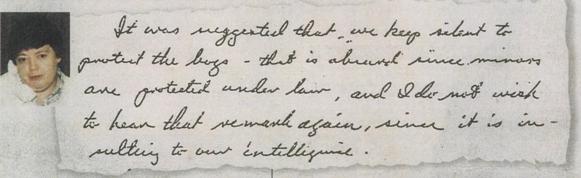 It was suggested that, we keep silent to
protect the boys - that is absurd since minors
are protected under law, and I do not wish
to hear that remark again, since it is in-
sulting to our intelligence.